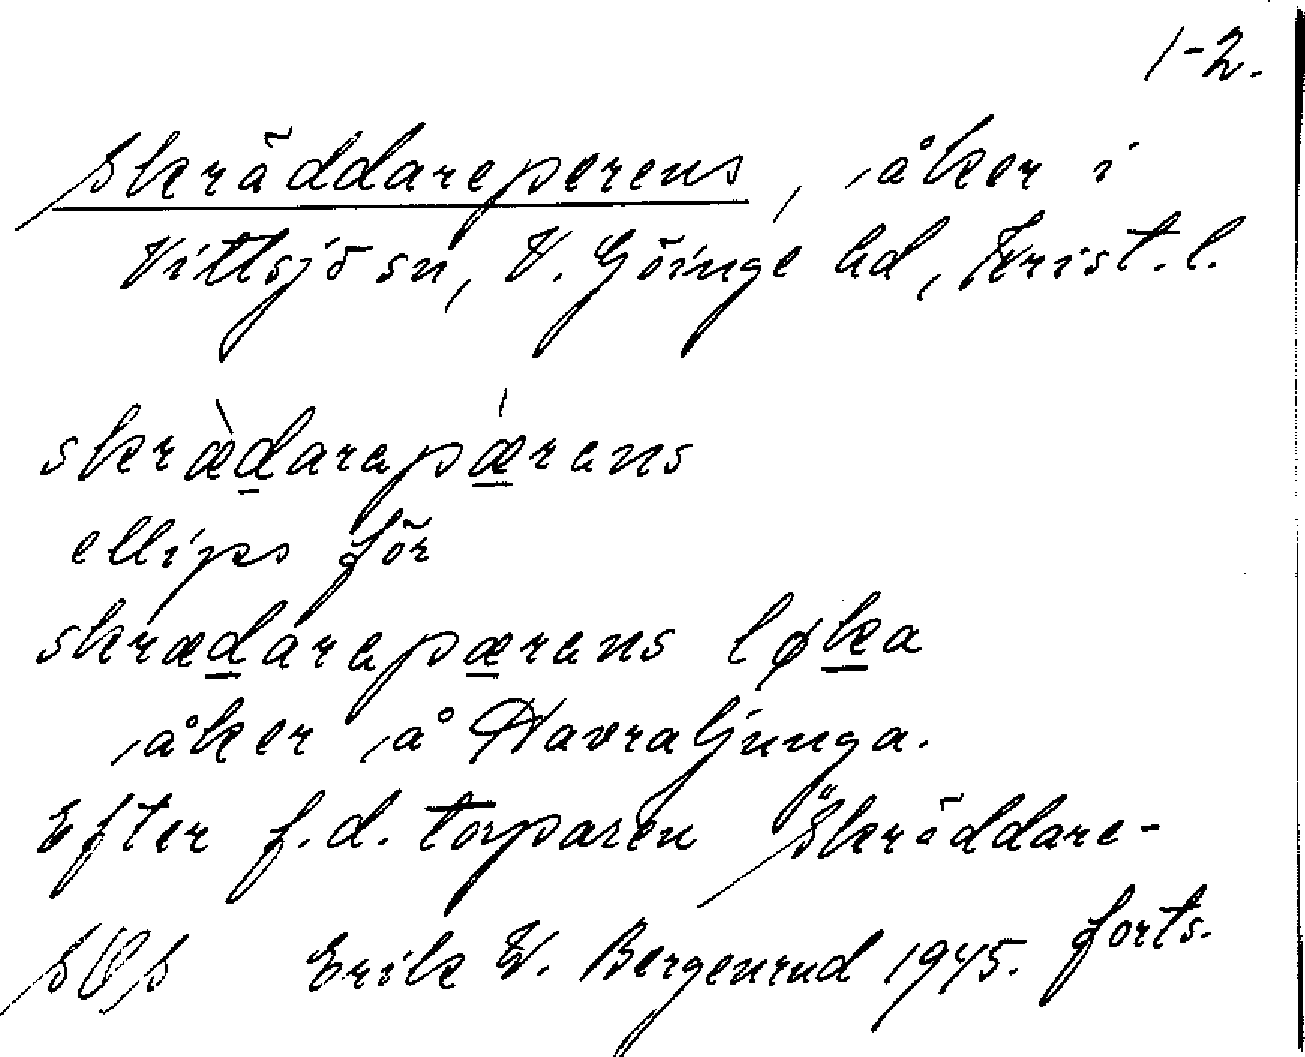 1-2.
Skräddareperens, åker i
Vittsjö sn, V. Göinge hd, Krist. l.
skræ̀darapǽrans
ellips för
skrædarapærans løka
åker å Havraljunga.
Efter f.d. torparen "Skräddare-
forts.
Erik W. Bergenrud 1945.